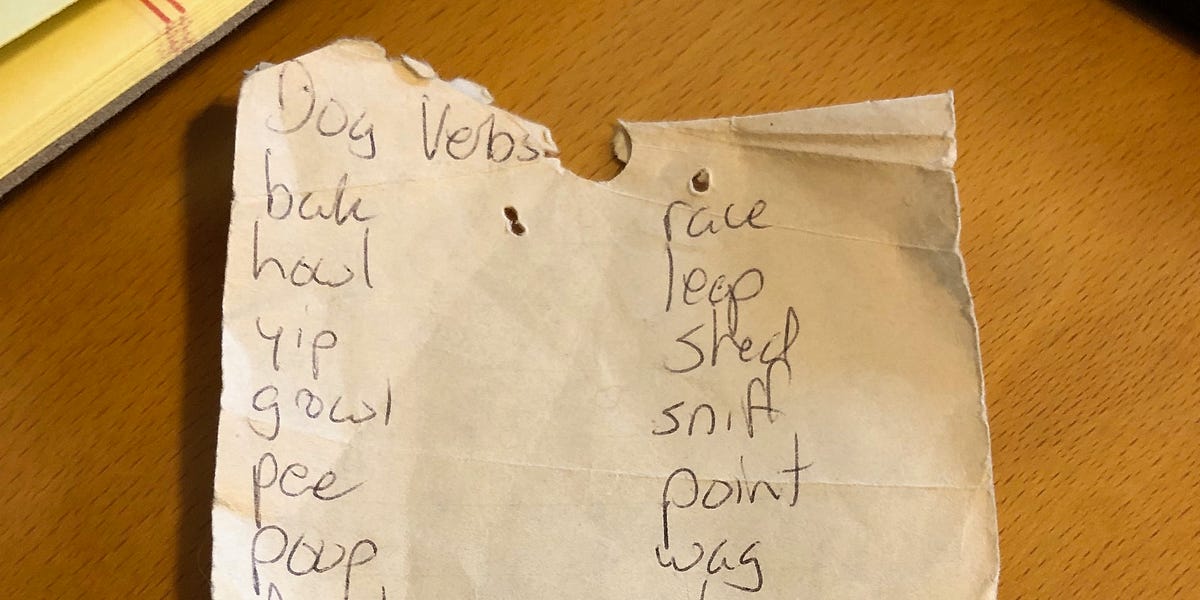 Dog Verbs
bark
howl
yip
growl
pee
poop
race
leap
shed
sniff
point
wag